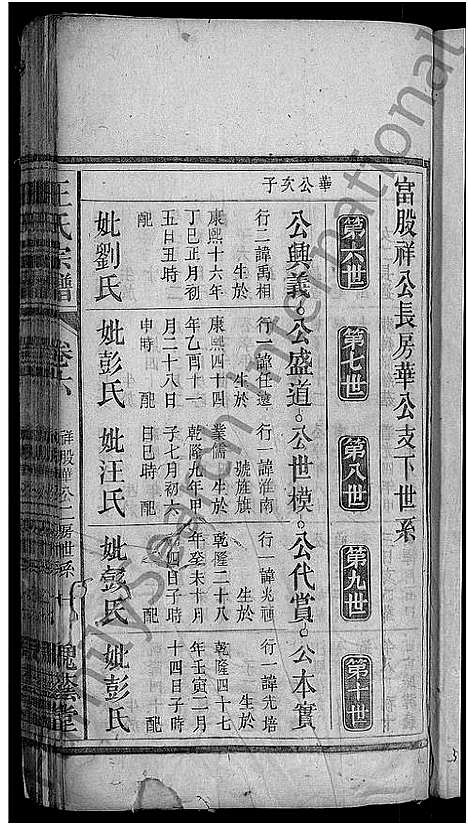 富股祥公長房華公支下世系
第六世
第七世
第八世
第九世
第十世
華公次子
公興義
公盛道
公世模
公代賞
公本實
行二諱禹相
生於
康熙十六年
丁巳正月初
五日丑時
配
妣劉氏
行一諱任遠
生於
康熙四十四
年乙酉十一
月二十八日
申時 配
妣彭氏
行一諱淮南
號旌旗
業儒 生於
乾隆九年甲
子七月初六
日巳時 配
妣汪氏
行一諱兆禎
生於
乾隆二十八
年癸未十月
初四日子時
配
妣彭氏
行一諱光培
生於
乾隆四十七
年壬寅二月
十四日子時
配
妣彭氏
王氏宗譜
卷六
祥股華公二房世系
槐蔭堂